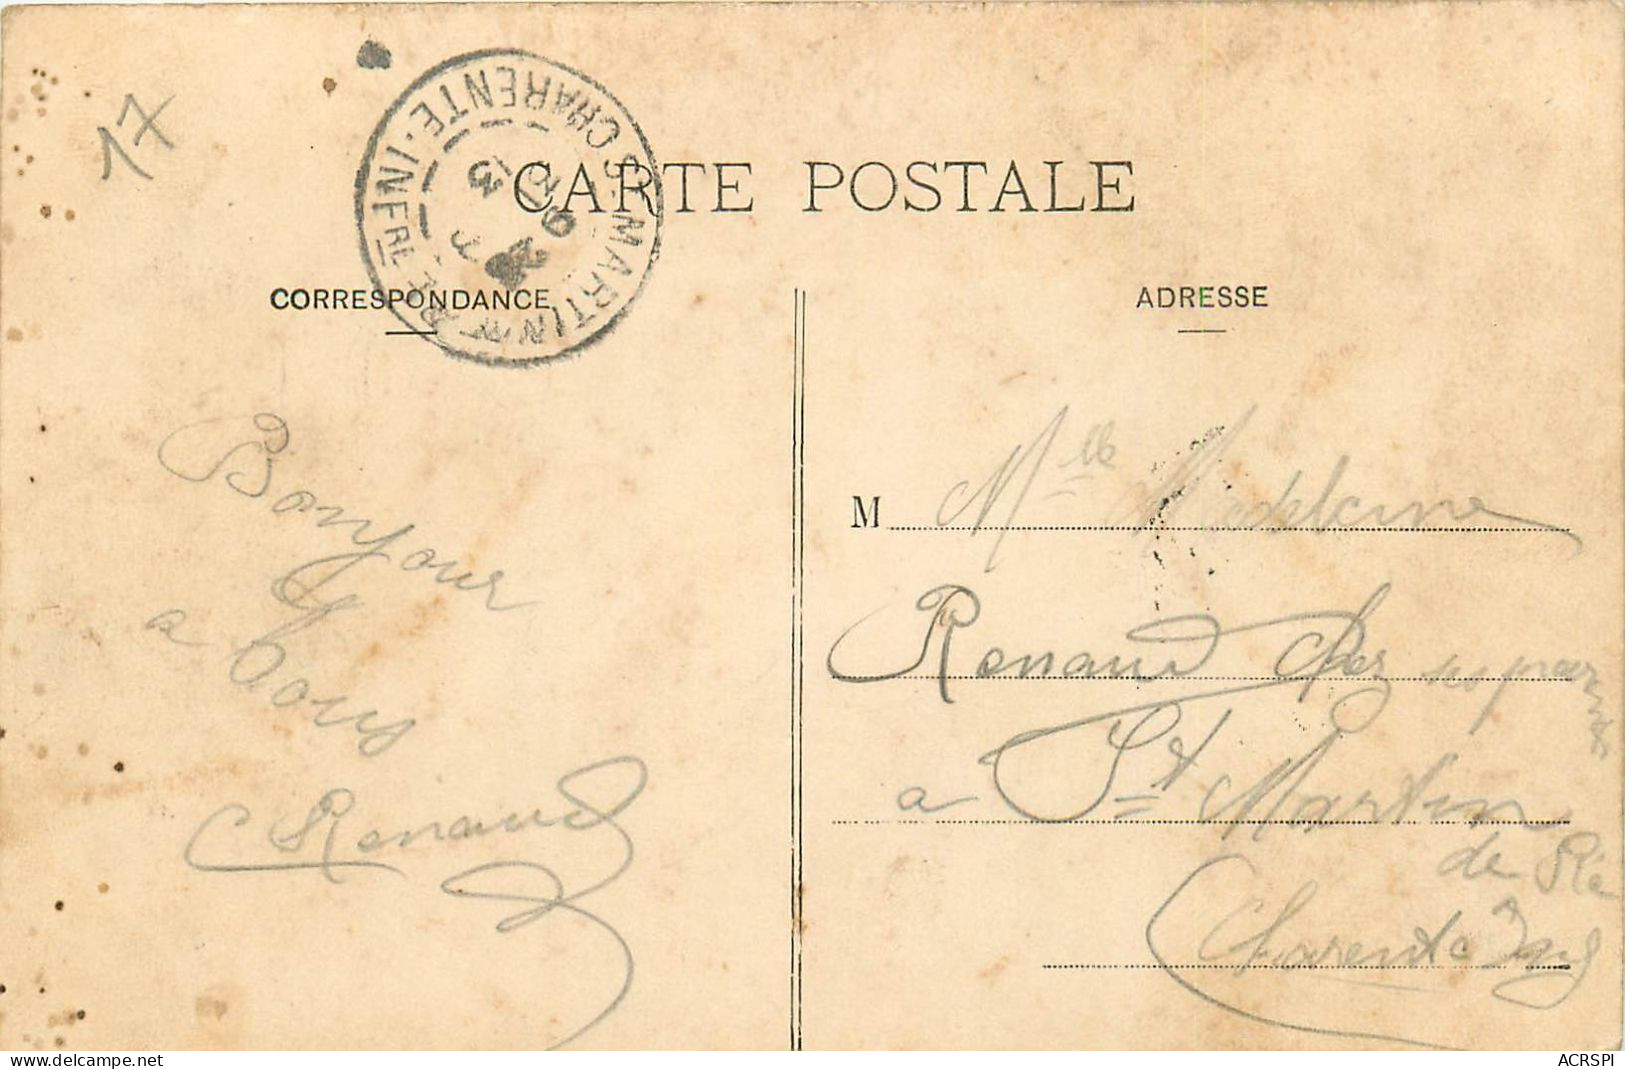 17
ST MARTIN DE RE CHARENTE-INFRE
CARTE POSTALE
CORRESPONDANCE
ADRESSE
Bonjour
a tous
Renaud
M Mlle Madeleine
Renaud chez ses parents
a St Martin
de Ré
Charente Inf
www.delcampe.net
ACRSPI